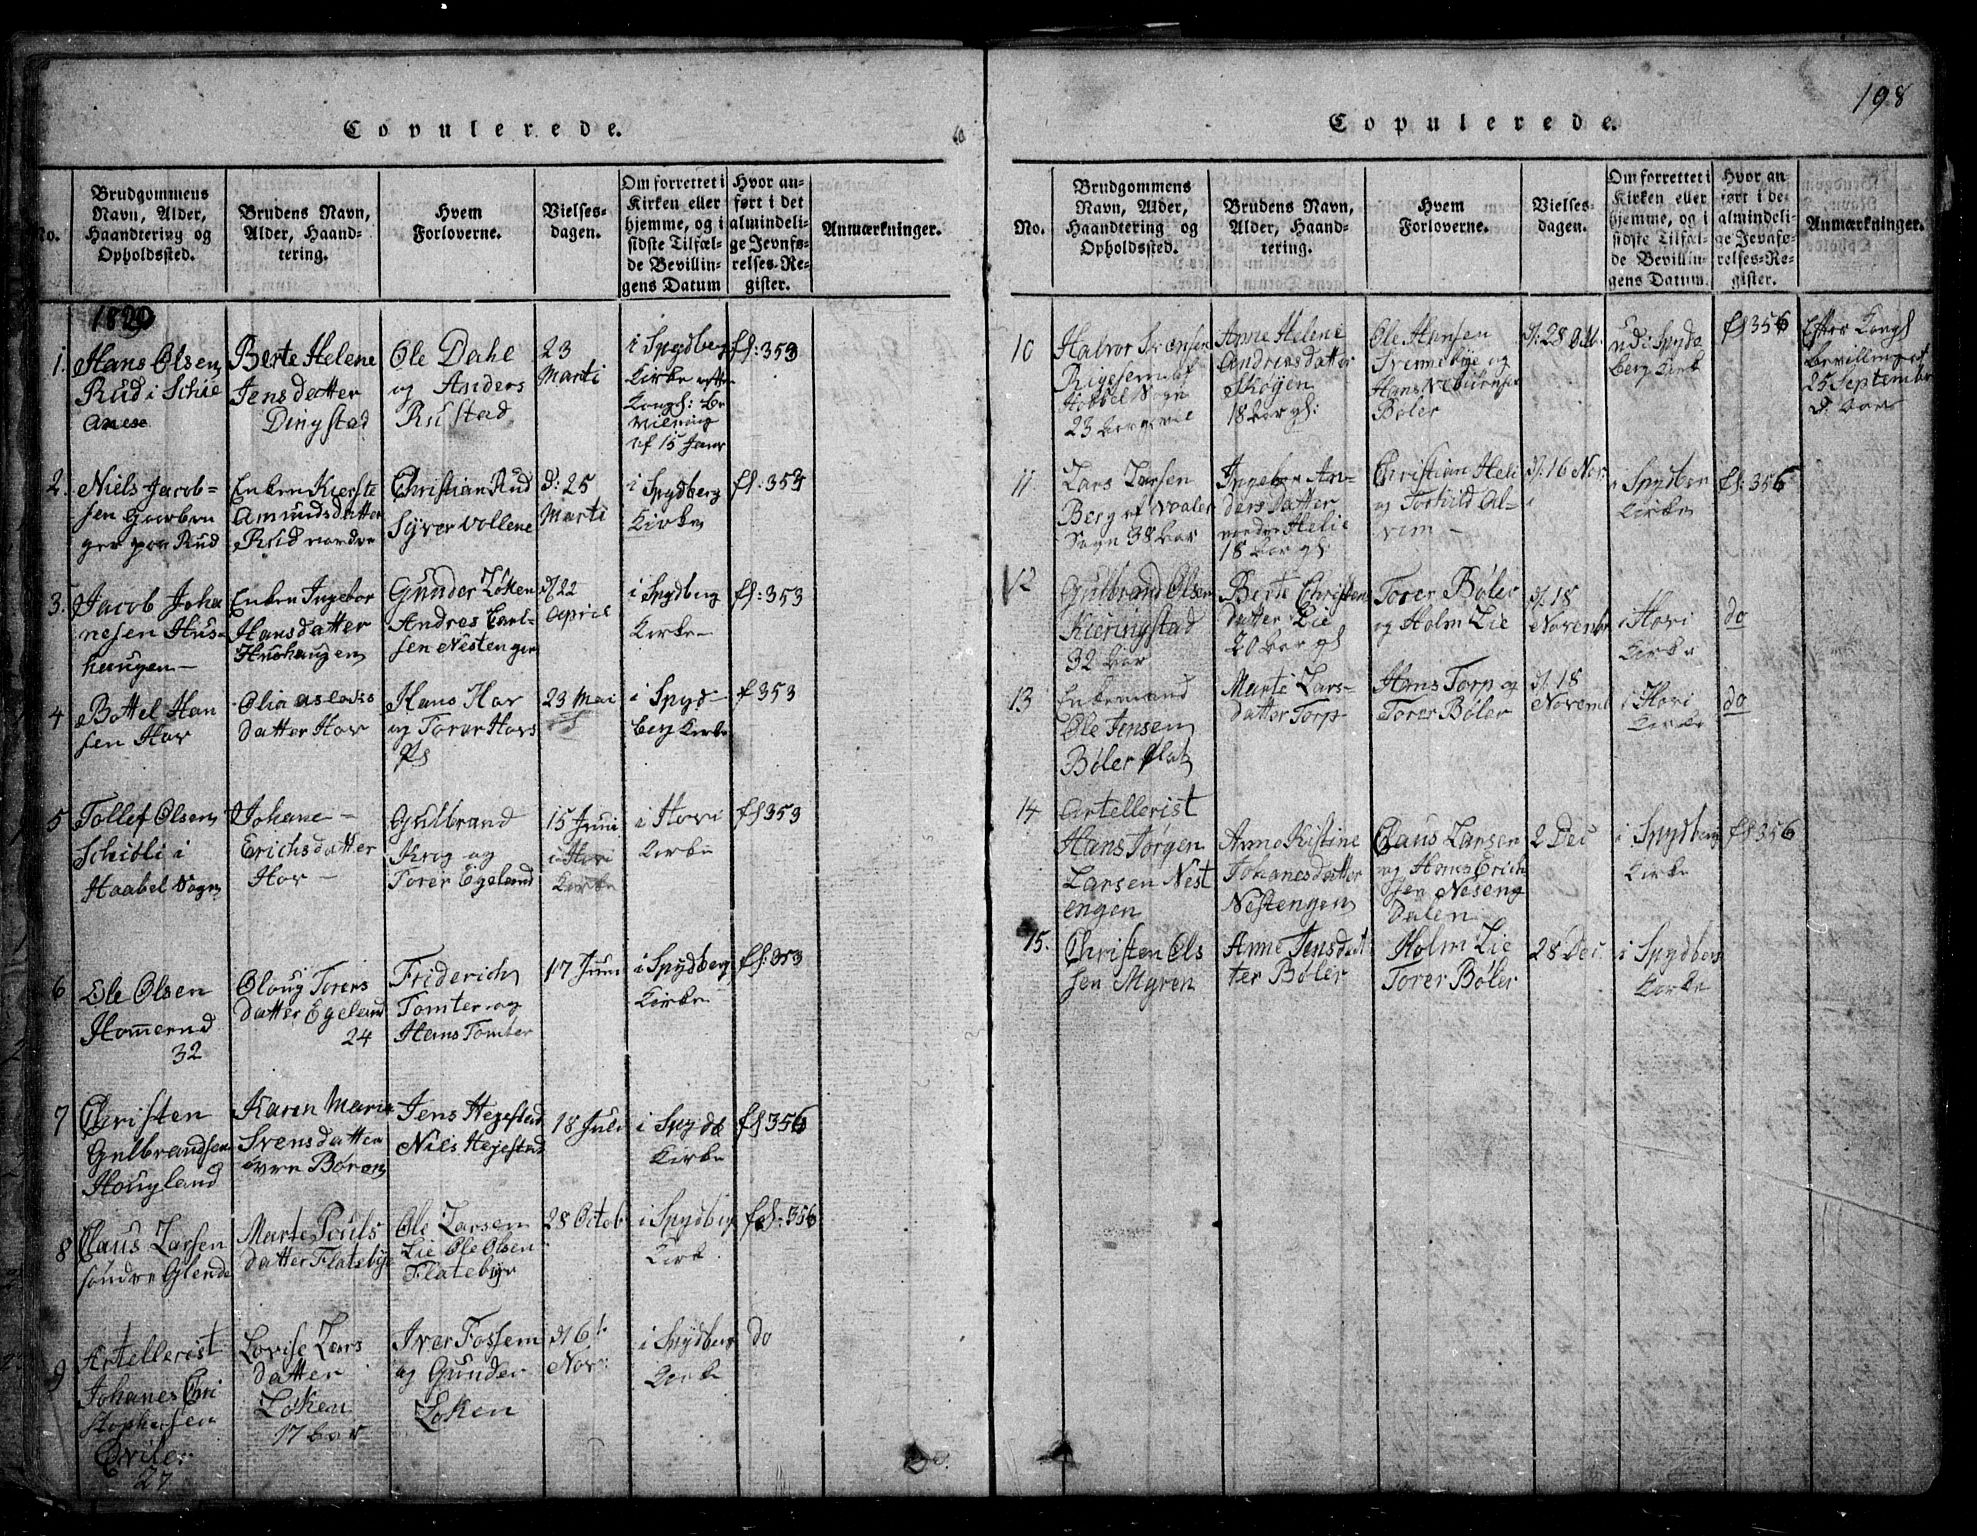 Copulerede.
No.
Brudgommens
Navn, Alder,
Haandtering og
Opholdssted.
Brudens Navn,
Alder, Haand-
tering.
Hvem
Forloverne.
Vielses-
dagen.
Om forrettet i
Kirken eller
hjemme, og i
sidste Tilfæl-
de Bevillin-
gens Datum
Hvor an-
ført i det
almindeli-
ge Jevnfø-
relses-Re-
gister.
Anmærkninger.
1820
1.
Hans Olsen
Rud i Schie
Berte Helene
Jens datter
Dingstad
Ole Dahl
og Anders
Rustad
23
Marti
i Spydberg
Kirke efter
Kongl: Be
vilning
af 15 Janr
fl: 353
2.
Niels Jacob-
sen
paa Rud
Enken Kierste
Amunds datter
Rud nordre
Christian Rud
Syver Vollene
d: 25
Marti
i Spydberg
Kirke
fl: 353
3.
Jacob Joha
nesen Hus-
haugen -
Enken Ingebor
Hans datter
Hushaugen
Gunder Løken
Andres Carl-
sen Nestengen
d 22
April
i Spydberg
Kirke
fl: 353
4
Bottel Han
sen Hov
Olia Aslacks
datter Hov
Hans Hov
og Torer Hovs
Ps
23 Mai
i Spyd-
berg Kirke
fl 353
5
Tollef Olsen
Schibli i
Haabel Sogn
Johane -
Erichsdatter
Hov -
Gulbrand
Krog og
Torer Egeland
15 Juni
i Hovi
Kirke
i Hovi
Kirke
fl 353
6
Ole Olsen
Homernd
32
Oloug Torers
datter Egeland
24
Friderich
Tomter og
Hans Tomter
17 Juni
i Spydberg
Kirke
fl: 353
7
Christen
Gulbrandsen
Hougland
Karen Marie
Svensdatter
øvre Børen
Jens Hegestad
Niels Hegestad
18 Juli
i Spydb
Kirke
fl 356
8
Claus Larsen
søndre Glende
Marte Pouls
datter Flatebye
Ole Larsen
Lie Ole Olsen
Flatebye
28 Octob
i Spydberg
Kirke
fl: 356
9
Artellerist
Johanes Chri
stophersen
27
Lovise Lars
datter
Løken
17 Aar
Iver Fossem
og Gunder
Løken
d 6t
Nov:
i Spydberg
Kirke
do
198
Copulerede.
No.
Brudgommens
Navn, Alder,
Haandtering og
Opholdssted.
Brudens Navn,
Alder, Haand-
tering.
Hvem
Forloverne.
Vielses-
dagen.
Om forrettet i
Kirken eller
hjemme, og i
sidste Tilfæl-
de Bevillin-
gens Datum.
Hvor an
ført i de
almindeli-
ge Jevnfø-
relses-Re-
gister.
Anmærkninger.
10
Halvor
Hobbel Sogn
23 Aar
Anne Helene
Andreas datter
Skøyen
18 Aar gl:
Ole Hansen
Svennebye og
Hans
Bøler
d: 28 Oct.
berg Kirk
fl 356
Efter Kongl
bevilling af
25 Septembr
d. Aar
11
Lars Larsen
Berg af Vaaler
Sogn 38 Aar
Ingebor An-
ders datter
nedre Helie
18 Aar gl:
Christian Heli
og Torkild Al-
vim -
d: 16 Nov.
i Spydber
Kirke
fl: 356
12
Gulbrand Olsen
Kieringstad
32 Aar
Berte Christens
datter Lie
20 Aar gl
Torer Bøler
og Holm Lie
d. 18
Novembr
i Hovi
Kirke
do
13
Enkemand
Ole Jensen
Bøler Plat
Marte Lars-
datter Torp
Hans Torp og
Torer Bøler
d. 18
Novemb
i Hovi
Kirke
do
14
Artellerist
Hans Jørgen
Larsen Nest
engen
Anne Kistine
Johanesdatter
Nestengen
Claus Larsen
og Hans Erich
sen Neseng
dalen
2 Dec
i Spydberg
Kirke
fl 356
15.
Christen Ols
sen Myren
Anne Jensdat
ter Bøler
Holm Lie
Torer Bøler
28 Dec
i Spydberg
Kirke